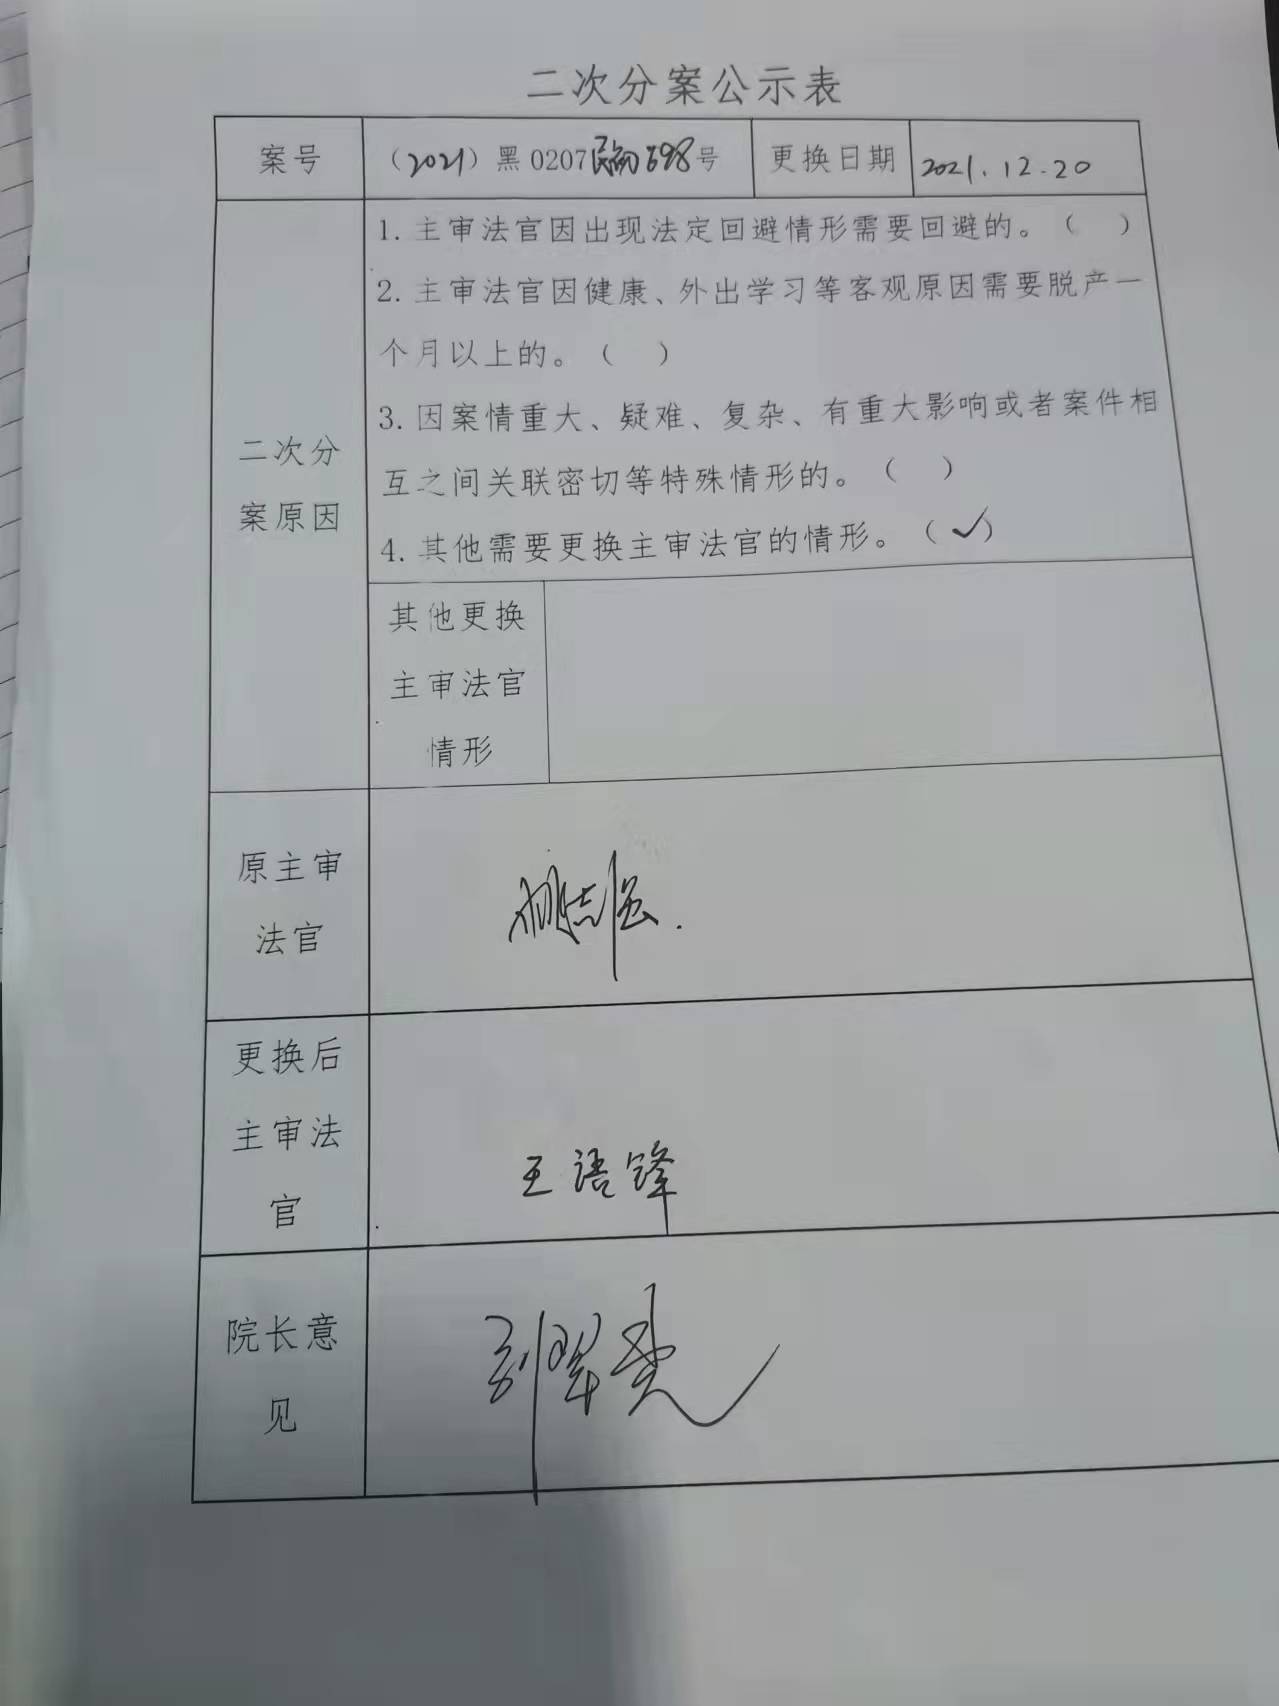 二次分案公示表
案号
（2021）黑0207民初698号
更换日期
2021.12.20
二次分
案原因
1. 主审法官因出现法定回避情形需要回避的。（ ）
2. 主审法官因健康、外出学习等客观原因需要脱产一
个月以上的。（ ）
3. 因案情重大、疑难、复杂、有重大影响或者案件相
互之间关联密切等特殊情形的。（ ）
4. 其他需要更换主审法官的情形。（✓）
其他更换
主审法官
情形
原主审
法官
更换后
主审法
官
王语锋
院长意
见